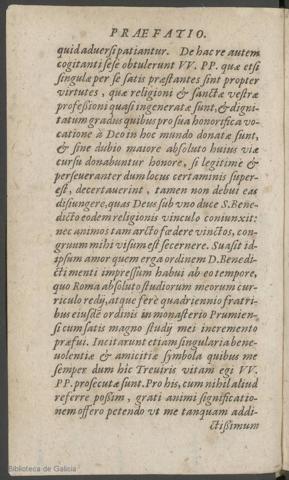 PRÆFATIO.
quid aduersi patiantur. De hac re autem
cogitanti sese obtulerunt VV. PP. quæ etsi
singulæ per se satis præstantes sint propter
virtutes, quæ religioni & sanctæ vestræ
professioni quasi ingeneratæ sunt, & digni-
tatum gradus quibus pro sua honorifica vo-
catione à Deo in hoc mundo donatæ sunt,
& sine dubio maiore absoluto huius viæ
cursu donabuntur honore, si legitimè &
perseueranter dum locus certaminis super-
est, decertauerint, tamen non debui eas
disiungere, quas Deus sub vno duce S. Bene-
dicto eodem religionis vinculo coniunxit:
nec animos tam arcto fœdere vinctos, con-
gruum mihi visum est secernere. Suasit id-
ipsum amor quem erga ordinem D. Benedi-
cti menti impressum habui ab eo tempore,
quo Roma absoluto studiorum meorum cur-
riculo redij, atque ferè quadriennio fratri-
bus eiusdē ordinis in monasterio Prumien-
si cum satis magno studij mei incremento
præfui. Incitarunt etiam singularia bene-
uolentiæ & amicitiæ symbola quibus me
semper dum hic Treuiris vitam egi VV.
PP. prosecutæ sunt. Pro his, cum nihil aliud
referre possim, grati animi significatio-
nem offero petendo vt me tanquam addi-
ctissimum
Biblioteca de Galicia